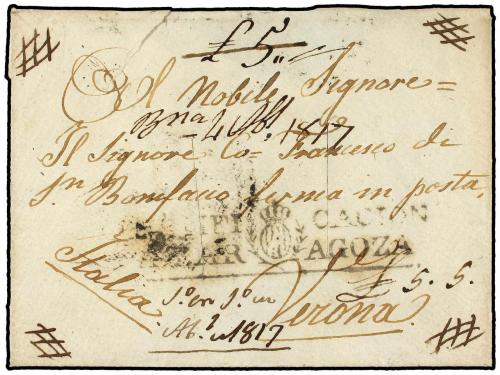 £ 5„
Al Nobile Signore =
Bna 4 1817
Il Signore Co= Francesco di
Sn Bonifacio ferma in posta,
CACION
ZAR AGOZA
Italia
Verona
£ 5. 5.
1817